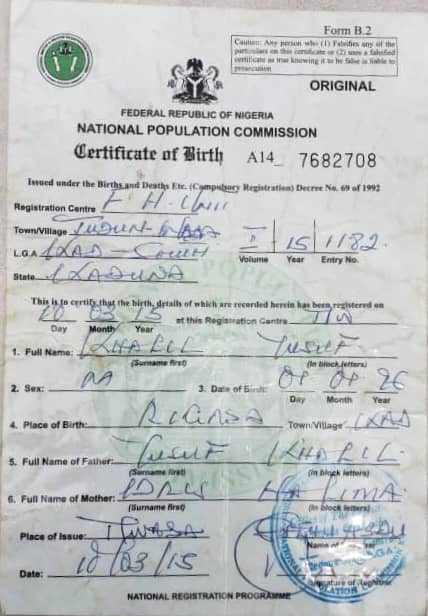 Form B.2
Caution: Any person who (1) Falsifies any of the
particulars on this certificate or (2) uses a falsified
certificate as true knowing it to be false is liable to
prosecution
ORIGINAL
FEDERAL REPUBLIC OF NIGERIA
NATIONAL POPULATION COMMISSION
Certificate of Birth A14_ 7682708
Issued under the Births and Deaths Etc. (Compulsory Registration) Decree No. 69 of 1992
Registration Centre
Town/Village TUDUN
L.G.A KAD - South II 15 1182
Volume Year Entry No.
State KADUNA
This is to certify that the birth, details of which are recorded herein has been registered on
10 03 15 at this Registration Centre T/W
Day Month Year
1. Full Name: KHALIL YUSUF
(Surname first) (In block letters)
2. Sex: M 3. Date of Birth:
Day Month Year
4. Place of Birth: RIGASA Town/Village: KAD
5. Full Name of Father: YUSUF KHALIL
(Surname first) (In block letters)
6. Full Name of Mother: IDRIS HALIMA
(Surname first) (In block letters)
Place of Issue: T/WADA
Name of
Date: 10/03/15
Signature of Registrar
NATIONAL REGISTRATION PROGRAMME